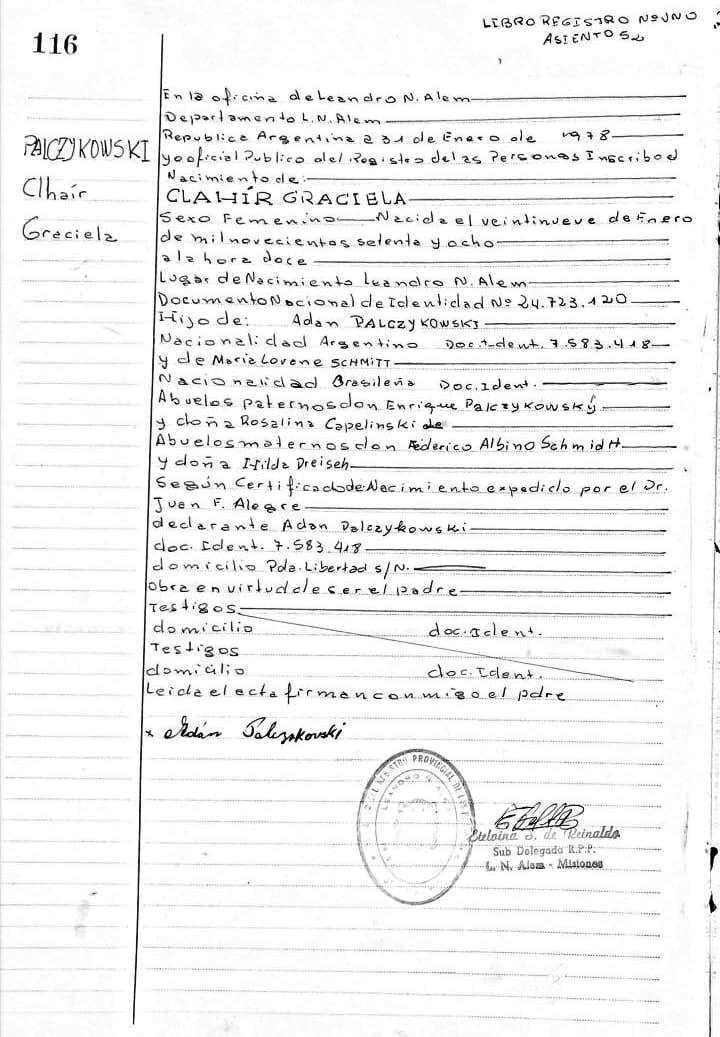 LIBRO REGISTRO Nº UNO
ASIENTO 52
116
PALCZYKOWSKI
Clhair
Graciela
En la oficina de Leandro N. Alem
Departamento L.N. Alem
Republica Argentina a 31 de Enero de 1978
yo oficial Publico del Registro de las Personas Inscribo el
Nacimiento de:
CLAHIR GRACIELA
Sexo Femenino Nacida el veintinueve de Enero
de mil novecientos setenta y ocho
a la hora doce
Lugar de Nacimiento Leandro N. Alem
Documento Nacional de Identidad Nº 24.723.120
Hijo de: Adan PALCZYKOWSKI
Nacionalidad Argentino Doc. Ident. 7.583.418
y de Maria Lovene SCHMITT
Nacionalidad Brasileña Doc. Ident.
Abuelos paternos don Enrique Palczykowsky
y doña Rosalina Capelinski de
Abuelos maternos don Federico Albino Schmidt
y doña Hilda Dreiseh
Según Certificado de Nacimiento expedido por el Dr.
Juan F. Alegre
declarante Adan Palczykowski
doc. Ident. 7.583.418
domicilio Pda. Libertad s/N.
obra en virtud de ser el padre
Testigos
domicilio doc. Ident.
Testigos
domicilio doc. Ident.
Leida el acta firman conmigo el pdre
x Adán Palczykowski
REGISTRO PROVINCIAL DE LAS
LEANDRO N. A
Etelvina S. de Reinaldo
Sub Delegada R.P.P.
L. N. Alem - Misiones